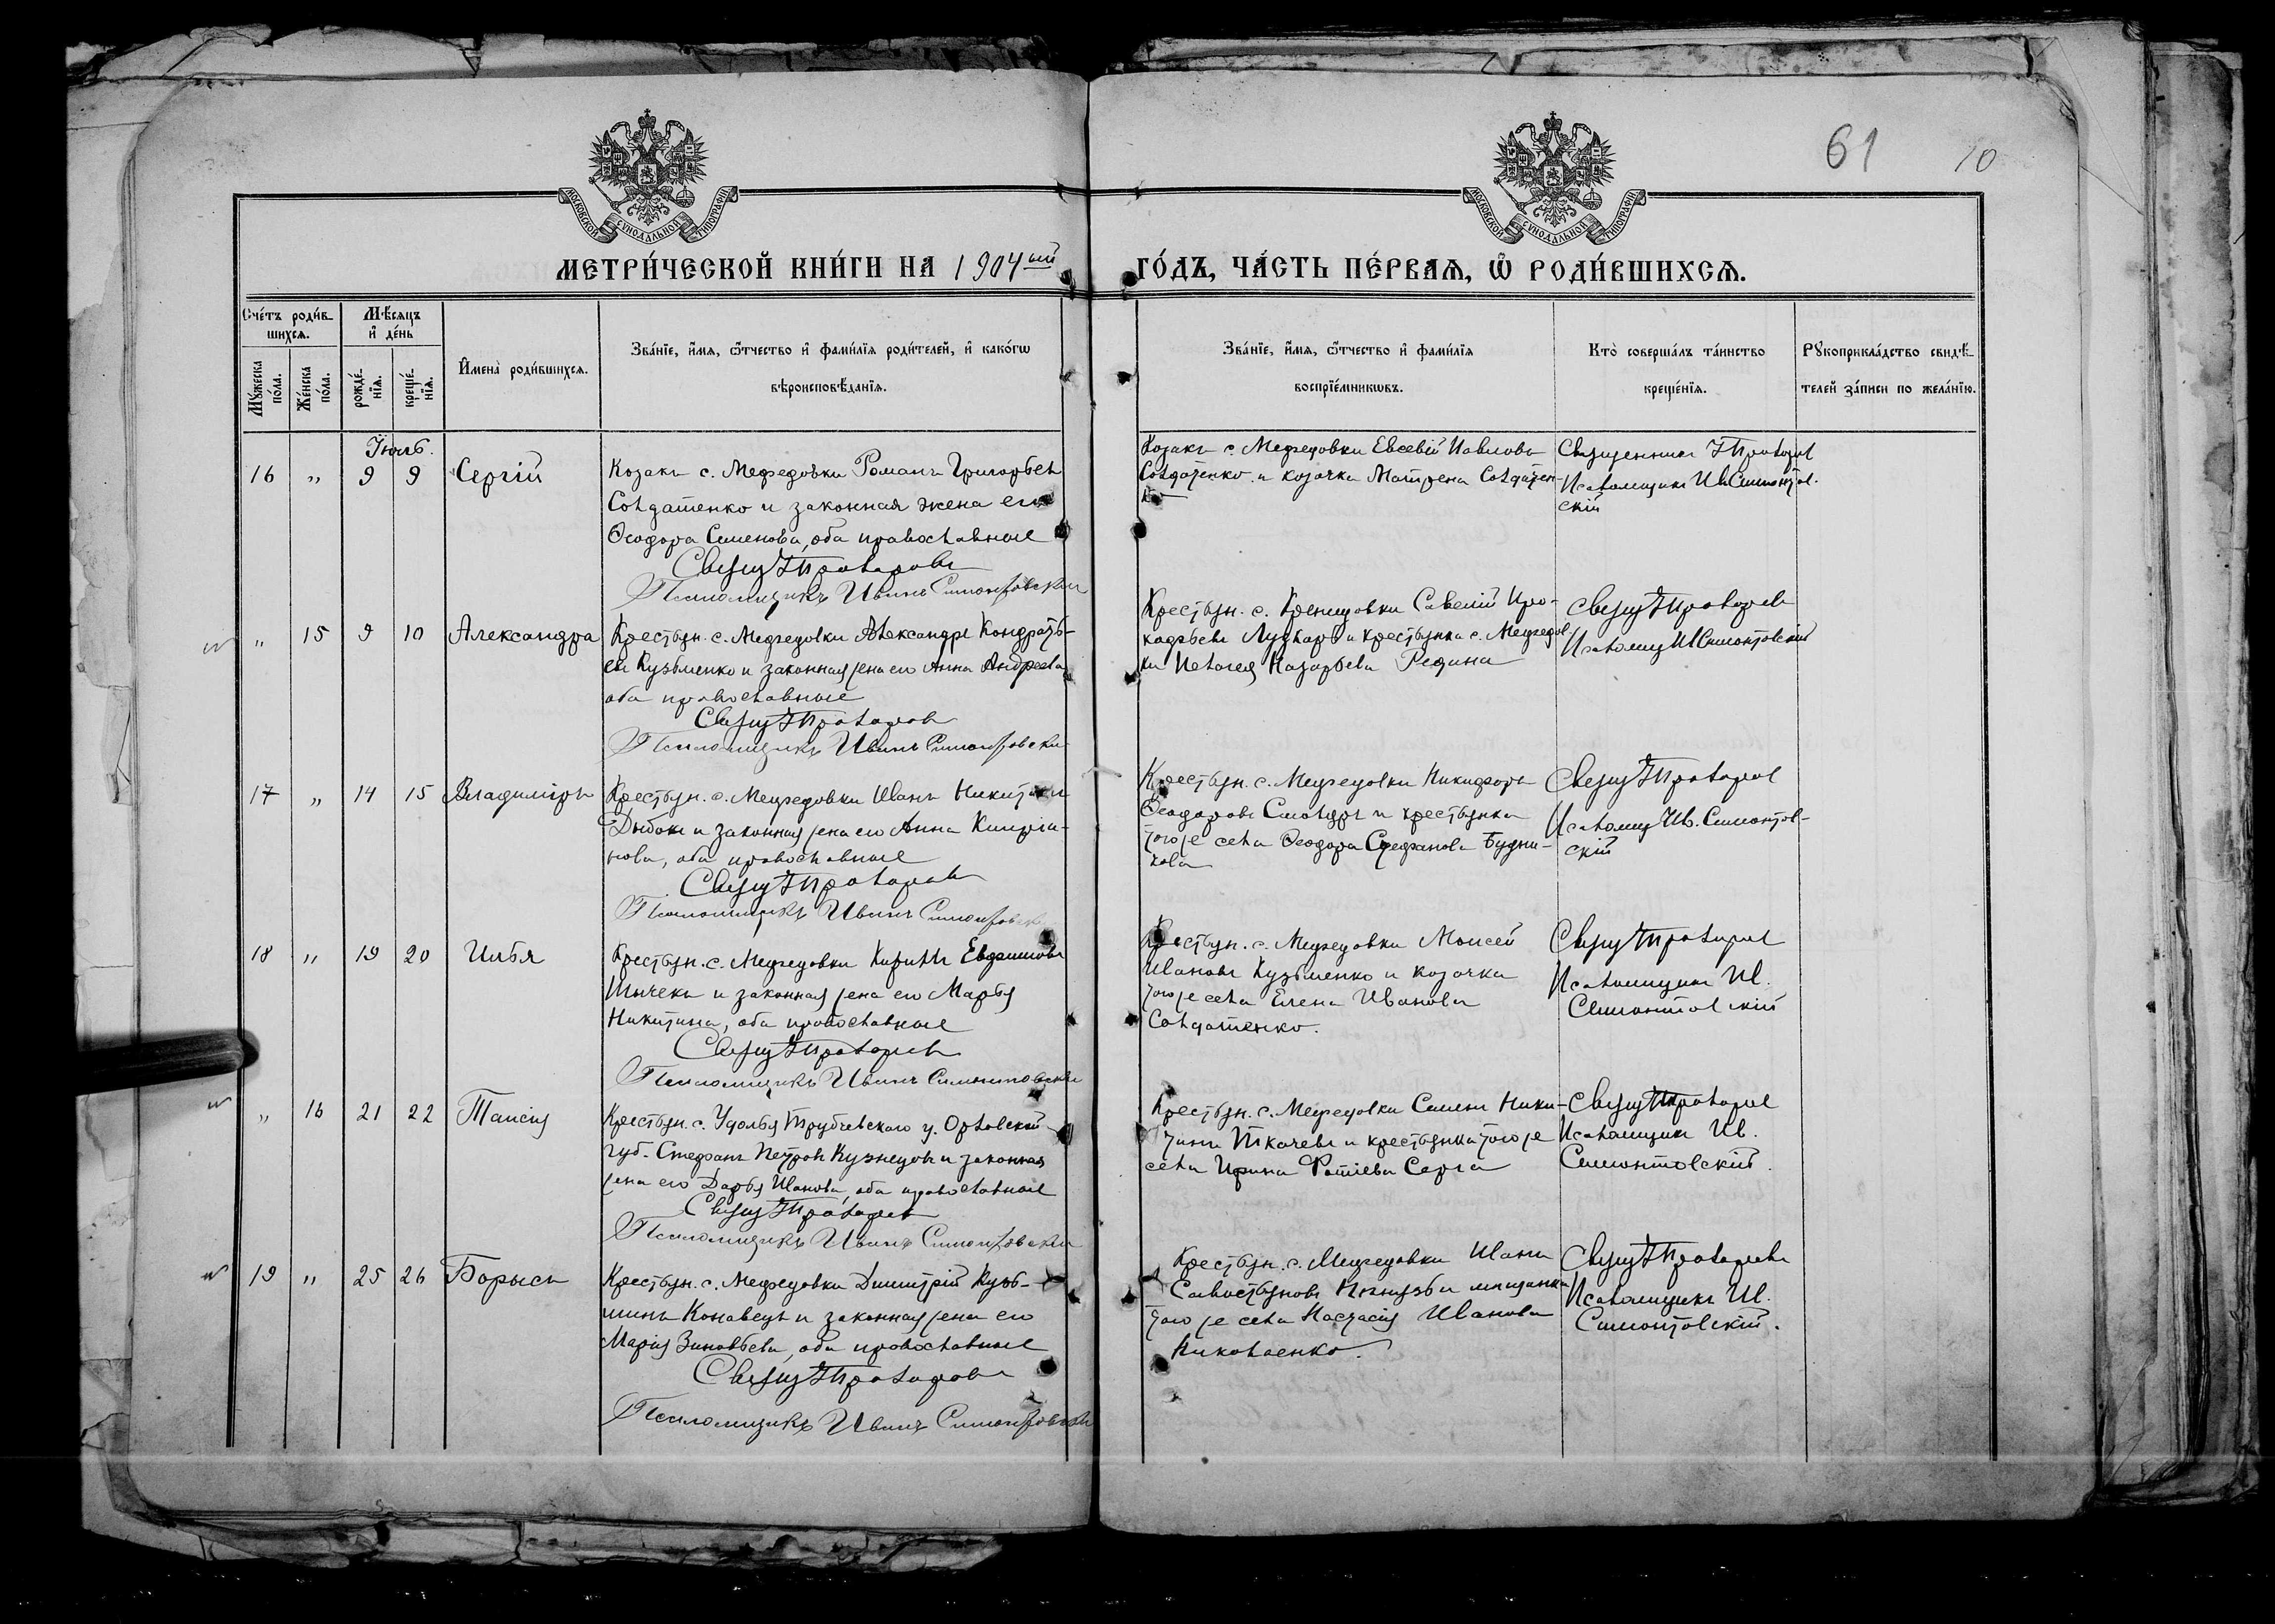 61 10
МОСКОВСКОЙ СѴНОДАЛЬНОЙ ТИПОГРАФІИ
МОСКОВСКОЙ СѴНОДАЛЬНОЙ ТИПОГРАФІИ
МЕТРИ́ЧЕСКОЙ КНИ́ГИ НА 1904ый ГО́ДЪ, ЧА́СТЬ ПЕ́РВАѦ, Ѽ РОДИ́ВШИХСѦ.
Сче́тъ роди́в-
шихсѧ.
Мꙋ́жеска по́ла.
Же́нска по́ла.
Мѣ́сѧцъ
и҆ де́нь
рожде́-
нїѧ.
креще́-
нїѧ.
И҆мена̀ роди́вшихсѧ.
Зва́нїе, и҆́мѧ, ѻ҆́тчество и҆ фами́лїѧ роди́телей, и҆ како́гѡ
вѣроисповѣ́данїѧ.
Зва́нїе, и҆́мѧ, ѻ҆́тчество и҆ фами́лїѧ
воспрїе́мникѡвъ.
Кто̀ соверша́лъ та́инство
креще́нїѧ.
Рꙋкоприкла́дство свидѣ́-
телей за́писи по жела́нїю.
Іюль.
16 " 9 9 Сергій
Козакъ с. Медведовки Романъ Григорьев
Солдатенко и законная жена его
Ѳеодора Семенова, оба православные
Псаломщикъ Иванъ Симонтовскій
Козакъ с. Медведовки Евсевій Павловъ
Солдатенко и козачка Матрена Солдатен-
ко
Священник
Псаломщикъ Ив. Симонтов-
скій
" 15 9 10 Александра
Крестьян. с. Медведовки Александръ Кондрать-
ев Кузьменко и законная жена его Анна Андреева
оба православные
Псаломщикъ Иванъ Симонтовскій
Крестьян. с. Савелій Про-
и крестьянка с. Медведов-
ки Пелагея Назарьева Редина
Псаломщ Ив Симонтовскій
17 " 14 15 Владиміръ
Крестьян. с. Медведовки Иванъ Никитинъ
и законная жена его Анна
нова, оба православные
Псаломщикъ Иванъ Симонтовскій
Крестьян. с. Медведовки Никифоръ
Ѳеодоровъ и крестьянка
того же села Ѳеодора Стефанова Будни-
кова
Псаломщ Ив. Симонтов-
скій
18 " 19 20 Илья
Крестьян. с. Медведовки Кириллъ Евфимовъ
и законная жена его Марья
Никитина, оба православные
Псаломщикъ Иванъ Симонтовскій
Крестьян. с. Медведовки Моисей
Ивановъ Кузьменко и козачка
того же села Елена Иванова
Солдатенко.
Псаломщикъ Ив.
Симонтовскій
" 16 21 22 Таисія
Крестьян. с. Удолья Трубчевскаго у. Орловской
губ. Стефанъ Петровъ Кузнецовъ и законная
жена его Дарья Иванова, оба православные
Псаломщикъ Иванъ Симонтовскій
Крестьян. с. Медведовки Семен Ники-
тинъ Ткачевъ и крестьянка того же
села Ирина Фотіева
Псаломщикъ Ив.
Симонтовскій
19 " 25 26 Борисъ
Крестьян. с. Медведовки Димитрій Кузь-
минъ Коновецъ и законная жена его
Марія Зиновьева, оба православные
Псаломщикъ Иванъ Симонтовскій
Крестьян. с. Медведовки Иванъ
того же села Настасія Иванова
Николаенко.
Псаломщикъ Ив.
Симонтовскій.